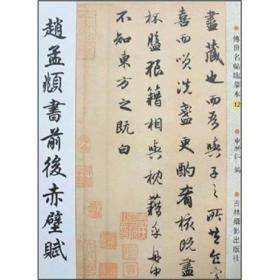 傳世名帖臨摹本 12
編
吉林攝影出版社
盡藏也而吾與子之所共食客
喜而咲洗盞更酌肴核既盡
杯盤狼籍相與枕藉乎舟中
不知東方之既白
趙孟頫書前後赤壁賦